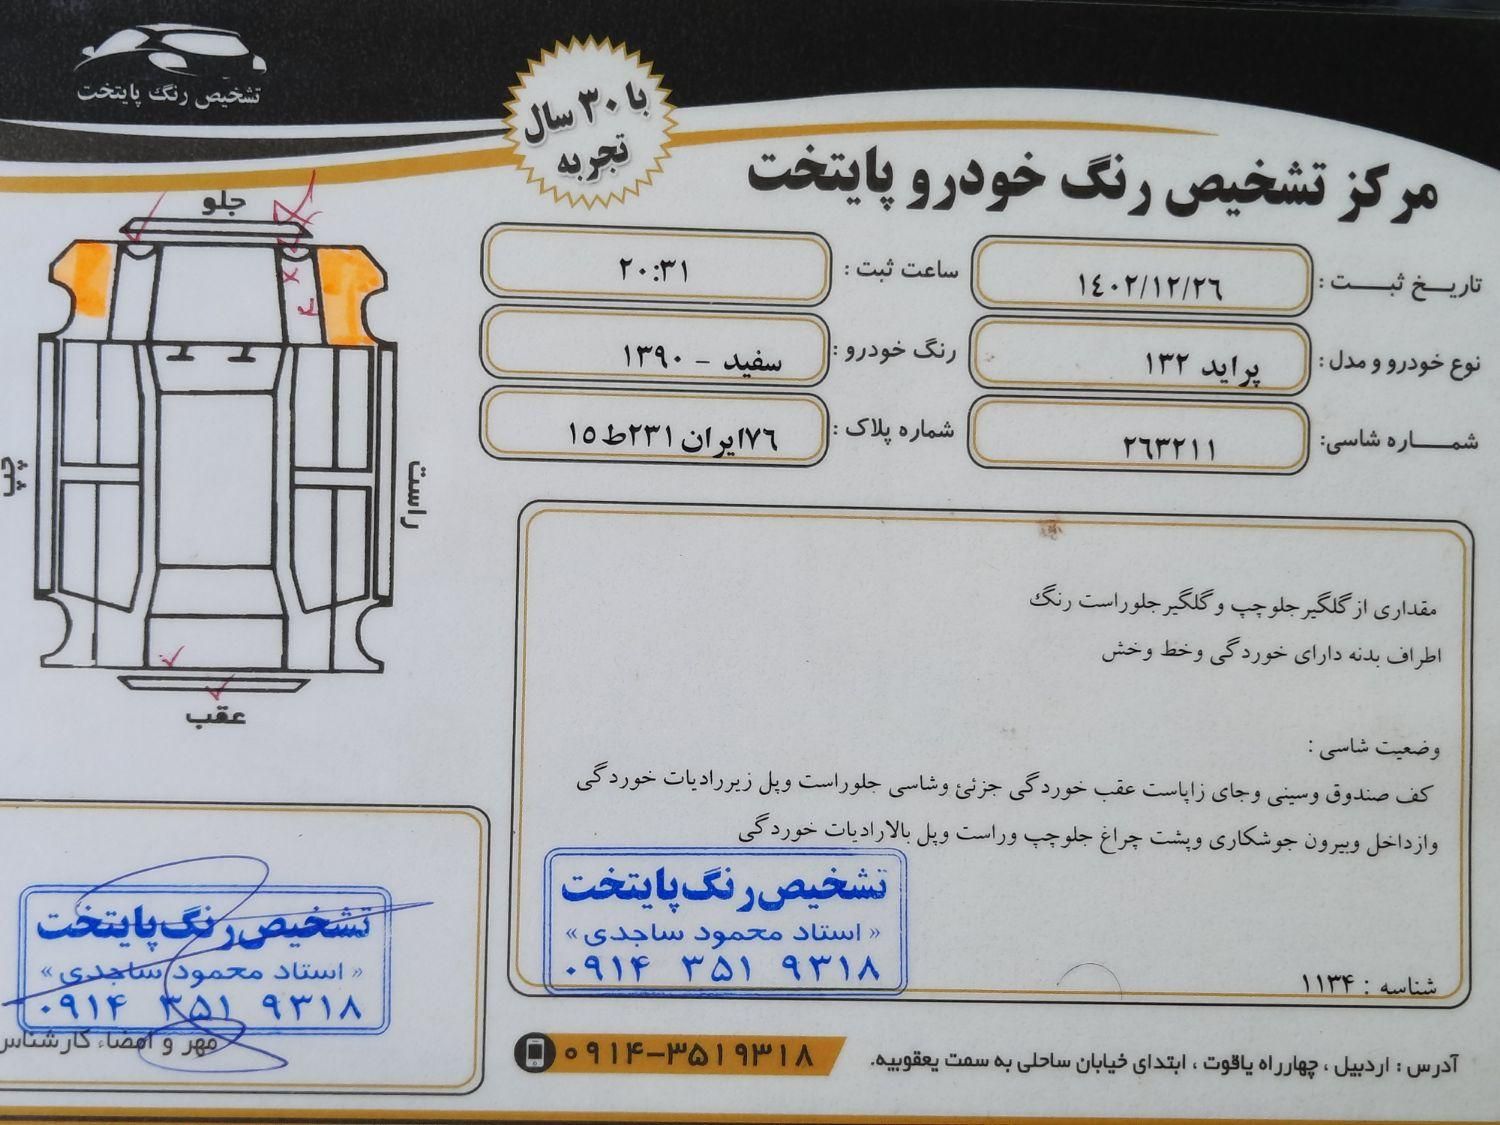 تشخیص رنگ پایتخت
با ۳۰ سال
تجربه
مرکز تشخیص رنگ خودرو پایتخت
تاریخ ثبت : ۱٤۰۲/۱۲/۲٦
ساعت ثبت : ۲۰:۳۱
نوع خودرو و مدل : پراید ۱۳۲
رنگ خودرو : سفید - ۱۳۹۰
شماره شاسی: ۲٦۳۲۱۱
شماره پلاک : ۷٦ایران ۲۳۱ط۱۵
جلو
چپ
راست
عقب
مقداری ازگلگیرجلوچپ وگلگیرجلوراست رنگ
اطراف بدنه دارای خوردگی وخط وخش
وضعیت شاسی :
کف صندوق وسینی وجای زاپاست عقب خوردگی جزئی وشاسی جلوراست وپل زیررادیات خوردگی
وازداخل وبیرون جوشکاری وپشت چراغ جلوچپ وراست وپل بالارادیات خوردگی
تشخیص رنگ پایتخت
« استاد محمود ساجدی »
۰۹۱۴ ۳۵۱ ۹۳۱۸
شناسه : ۱۱۳۴
تشخیص رنگ پایتخت
« استاد محمود ساجدی »
۰۹۱۴ ۳۵۱ ۹۳۱۸
مهر و امضاء کارشناس
۰۹۱۴-۳۵۱۹۳۱۸
آدرس : اردبیل ، چهارراه یاقوت ، ابتدای خیابان ساحلی به سمت یعقوبیه.